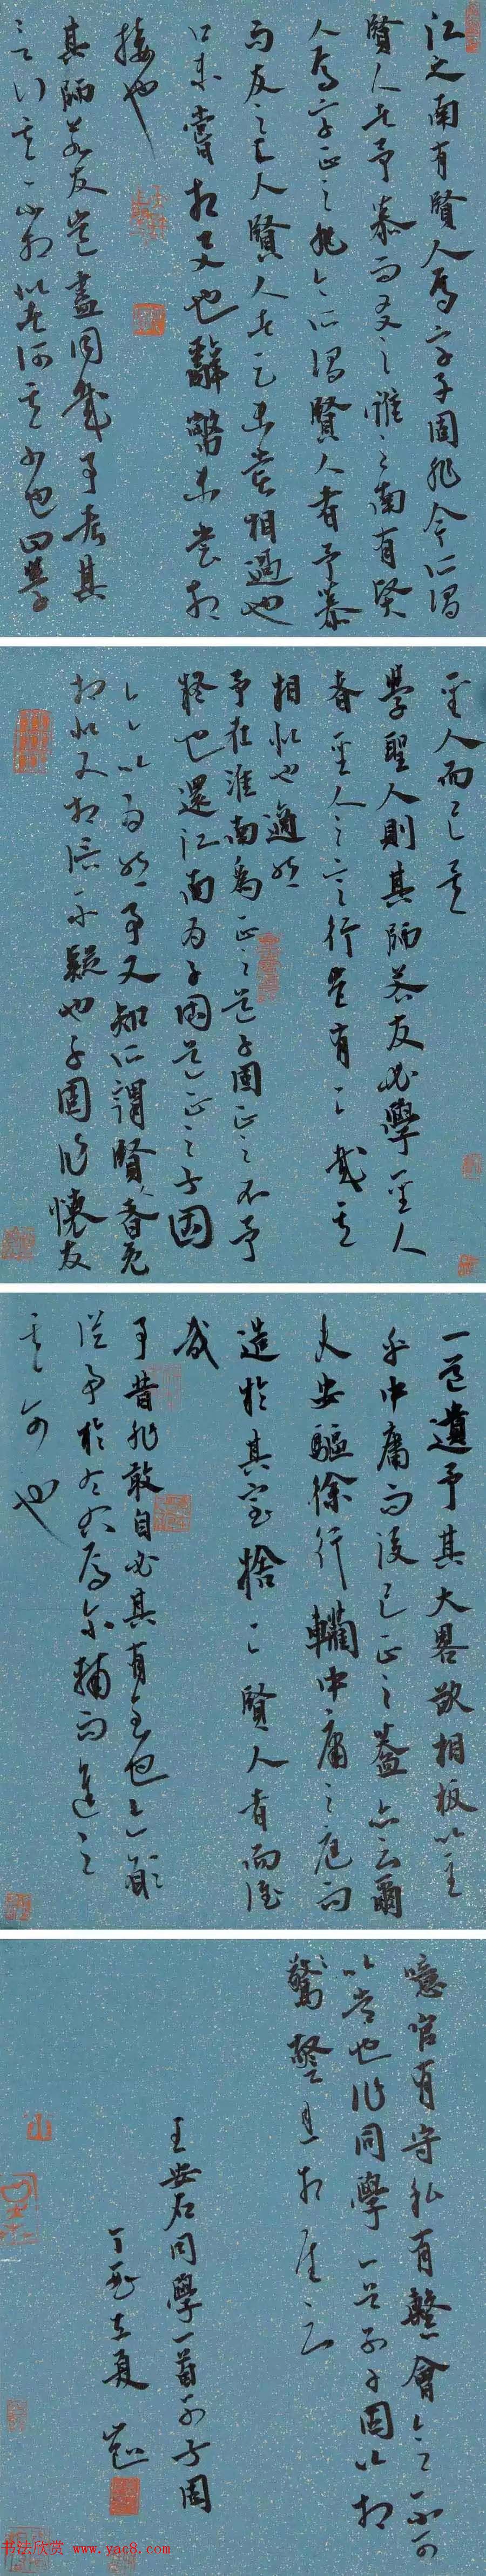 江之南有賢人焉字子固非今所謂
賢人者予慕而友之淮之南有賢
人焉字正之非今所謂賢人者予慕
而友之二賢人者足未嘗相過也
口未嘗相語也辭幣未嘗相
接也
其師若友豈盡同哉予考其
言行其不相似者何其少也曰學
聖人而已矣
學聖人則其師若友必學聖人
者聖人之言行豈有二哉其
相似也適然
予在淮南為正之道子固正之不予
疑也還江南為子固道正之子固
亦以為然予又知所謂賢人者既
相似又相信不疑也子固作懷友
一首遺予其大畧欲相扳以至
乎中庸而後已正之蓋亦云爾
夫安驅徐行轥中庸之庭而
造於其室捨二賢人者而誰
哉
予昔非敢自必其有至也亦願
從事於左右焉爾輔而進之
其可也
噫官有守私有繫會合不可
以常也作同學一首別子固以相
警且相慰云
王安石同學一首別子固
丁酉立夏
书法欣赏 www.yac8.com